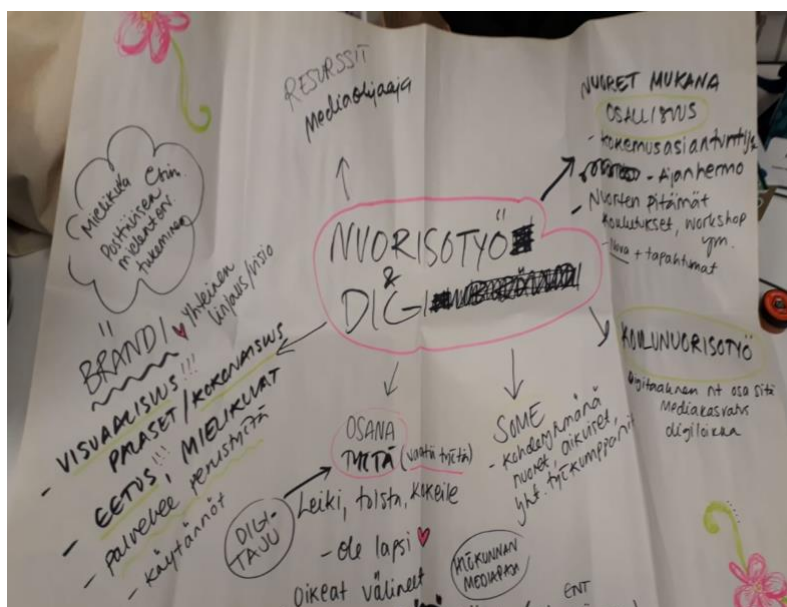 RESURSSIT
Mediaohjaaja
NUORET MUKANA
OSALLISUUS
- Kokemusasiantuntija
- Ajanhermo
- Nuorten pitämät
koulutukset, workshop
ym.
+ tapahtumat
Mielikuva
Positiivisen
mielenterv.
tukeminen
NUORISOTYÖ
&
DIGI
"
BRANDI
Yhteinen
linjaus/visio
- VISUAALISUUS!!!
PALASET/KOKONAISUUS
- EETOS!!! MIELIKUVAT
- palvelee perustyötä
- KÄYTÄNNÖT
KOULUNUORISOTYÖ
Digitaalinen nt osa sitä
Mediakasvatus
digiloikka
OSANA
TYÖTÄ (vaatii työtä)
DIGI-
TAJU
Leiki, toista, kokeile
- Ole lapsi
Oikeat välineet
SOME
- kohderyhmänä
nuoret, aikuiset,
yht. työkumppanit
MEDIAPAJA
ENT